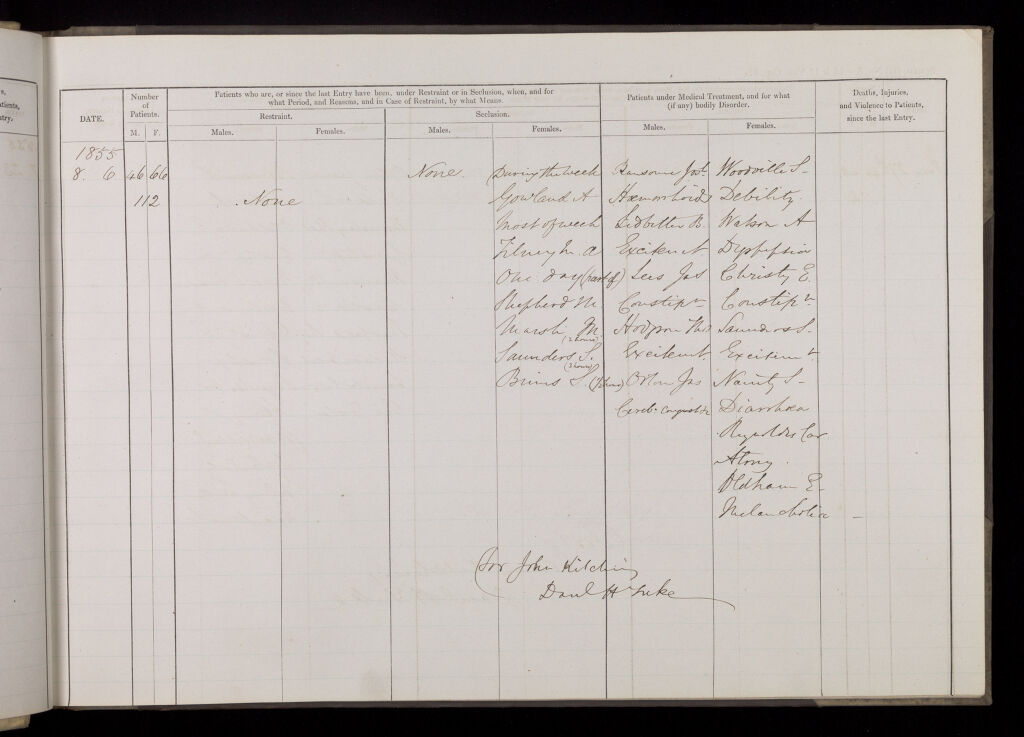 s,
atients,
try.
DATE.
Number
of
Patients.
M. F.
Patients who are, or since the last Entry have been, under Restraint or in Seclusion, when, and for
what Period, and Reasons, and in Case of Restraint, by what Means.
Restraint.
Males.
Females.
Seclusion.
Males.
Females.
Patients under Medical Treatment, and for what
(if any) bodily Disorder.
Males.
Females.
Deaths, Injuries,
and Violence to Patients,
since the last Entry.
1855
8. 6
46 66
112
None
None.
During the week
Gowland A
Most of week
M. A
One day (part of)
Shepherd M
Marsh M
(2 hours)
Saunders S.
(3 hours)
Binns S.
Ransome Jos.
Hæmorrhoids
Ledbitter B.
Excitem t.
Lees Jas
Constip n
Hodgson Thos
Excitem t.
Orton Jas
Cereb. Congestion
Woodville S-
Debility.
Watson A
Dyspepsia
Christy E.
Constip n.
Saunders S-
Excitem t.
S-
Diarrhœa
Reynolds Car
Atony.
Oldham E-
Melancholia -
for John Kitching
Danl H Tuke